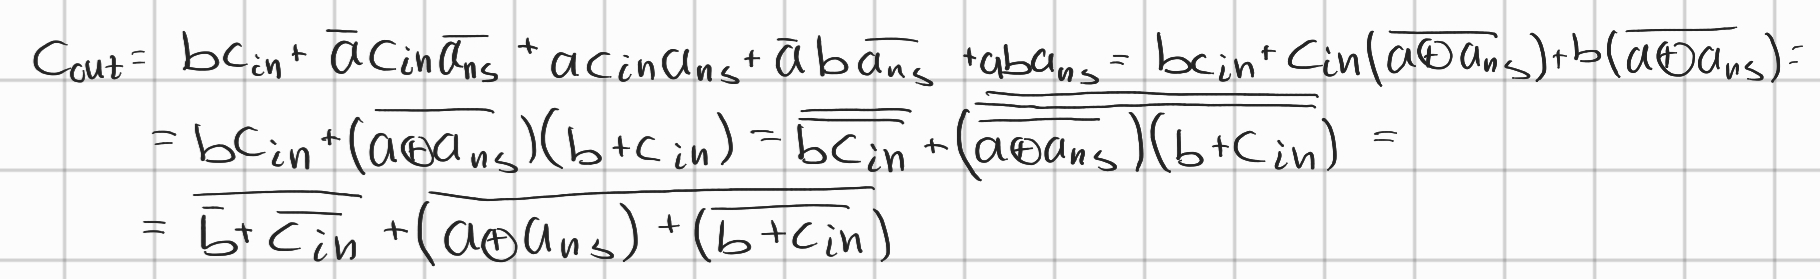 C_out = bc_in + \overline{a}c_in\overline{a_ns} + ac_in a_ns + \overline{a}b\overline{a_ns} + aba_ns = bc_in + c_in(\overline{a⊕a_ns}) + b(\overline{a⊕a_ns}) =
= bc_in + (\overline{a⊕a_ns})(b + c_in) = \overline{\overline{bc_in}} + \overline{\overline{(\overline{a⊕a_ns})(b + c_in)}} =
= \overline{\overline{b} + \overline{c_in}} + \overline{(a⊕a_ns) + (\overline{b + c_in})}